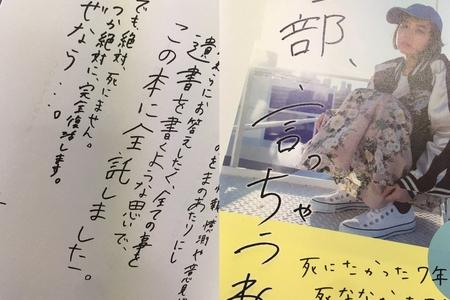 憶測や意見
をまのあたりにし
うにお答えしたく、全ての事を
遺書を書くような思いで、
この本に全託しました。
でも、絶対、死にません。
つか絶対に、完全復活します。
ぜなう…。
部、言っちゃうね
死にたかった7年
死ななかった